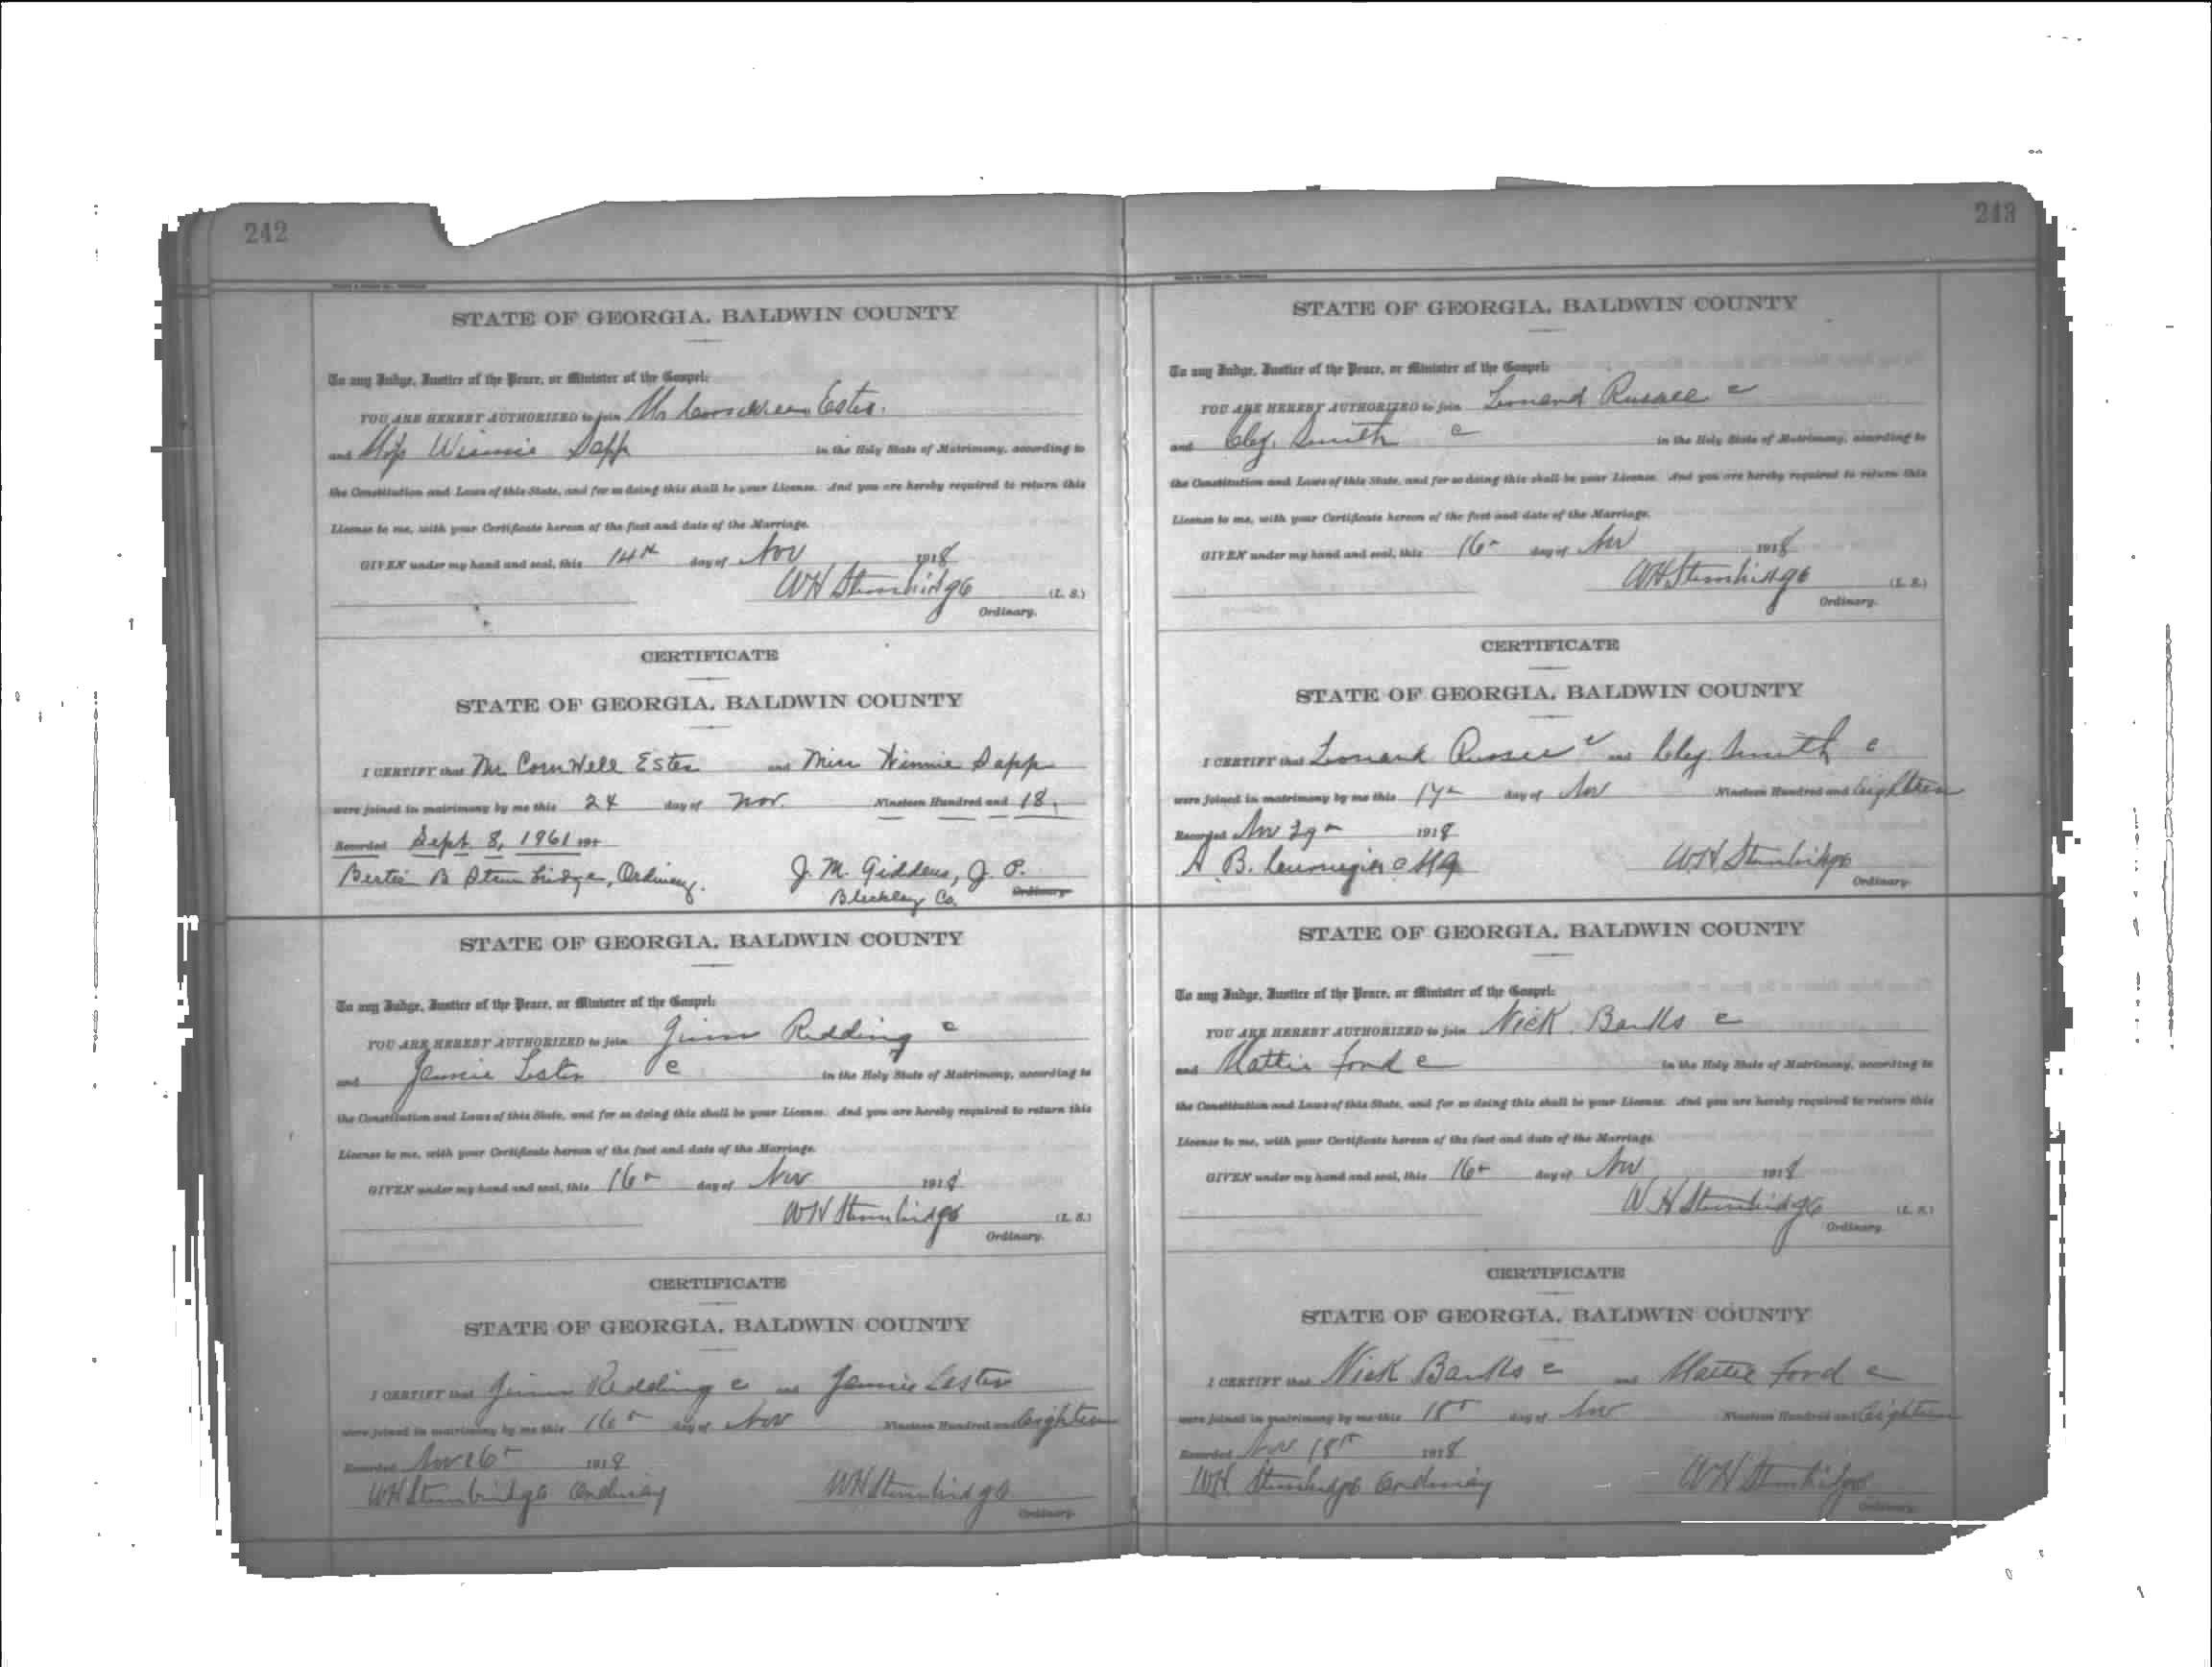 242
STATE OF GEORGIA, BALDWIN COUNTY
To any Judge, Justice of the Peace, or Minister of the Gospel:
YOU ARE HEREBY AUTHORIZED to join Mr Estes.
and Miss Winnie Sapp in the Holy State of Matrimony, according to
the Constitution and Laws of this State, and for so doing this shall be your License. And you are hereby required to return this
License to me, with your Certificate hereon of the fact and date of the Marriage.
GIVEN under my hand and seal, this 14th day of Nov 1918
WH Stembridge (L. S.)
Ordinary.
CERTIFICATE
STATE OF GEORGIA, BALDWIN COUNTY
I CERTIFY that Mr. CornWell Estes and Miss Winnie Sapp
were joined in matrimony by me this 24 day of Nov. Nineteen Hundred and 18.
Recorded Sept. 8, 1961 191
Bertie B Stembridge, Ordinary. J. M. Giddens, J. P.
Bleckley Co. Ordinary
STATE OF GEORGIA, BALDWIN COUNTY
To any Judge, Justice of the Peace, or Minister of the Gospel:
YOU ARE HEREBY AUTHORIZED to join Jim Redding c
and Jennie Lester c in the Holy State of Matrimony, according to
the Constitution and Laws of this State, and for so doing this shall be your License. And you are hereby required to return this
License to me, with your Certificate hereon of the fact and date of the Marriage.
GIVEN under my hand and seal, this 16 day of Nov 1918
WH Stembridge (L. S.)
Ordinary.
CERTIFICATE
STATE OF GEORGIA, BALDWIN COUNTY
I CERTIFY that Jim Redding c and Jennie Lester
were joined in matrimony by me this 16 day of Nov Nineteen Hundred and Eighteen
Recorded Nov 1918
WH Stembridge Ordinary WH Stembridge
Ordinary.
243
STATE OF GEORGIA, BALDWIN COUNTY
To any Judge, Justice of the Peace, or Minister of the Gospel:
YOU ARE HEREBY AUTHORIZED to join Leonard c
and Smith c in the Holy State of Matrimony, according to
the Constitution and Laws of this State, and for so doing this shall be your License. And you are hereby required to return this
License to me, with your Certificate hereon of the fact and date of the Marriage.
GIVEN under my hand and seal, this 16 day of Nov 1918
WH Stembridge (L. S.)
Ordinary.
CERTIFICATE
STATE OF GEORGIA, BALDWIN COUNTY
I CERTIFY that Leonard c and Smith c
were joined in matrimony by me this 17 day of Nov Nineteen Hundred and Eighteen
Recorded Nov 29 1918
A. B. WH Stembridge
Ordinary
STATE OF GEORGIA, BALDWIN COUNTY
To any Judge, Justice of the Peace, or Minister of the Gospel:
YOU ARE HEREBY AUTHORIZED to join Nick Banks c
and Mattie Ford c in the Holy State of Matrimony, according to
the Constitution and Laws of this State, and for so doing this shall be your License. And you are hereby required to return this
License to me, with your Certificate hereon of the fact and date of the Marriage.
GIVEN under my hand and seal, this 16 day of Nov 1918
WH Stembridge (L. S.)
Ordinary.
CERTIFICATE
STATE OF GEORGIA, BALDWIN COUNTY
I CERTIFY that Nick Banks c and Mattie Ford c
were joined in matrimony by me this 18 day of Nov Nineteen Hundred and Eighteen
Recorded Nov 18 1918
WH Stembridge Ordinary WH Stembridge
Ordinary.